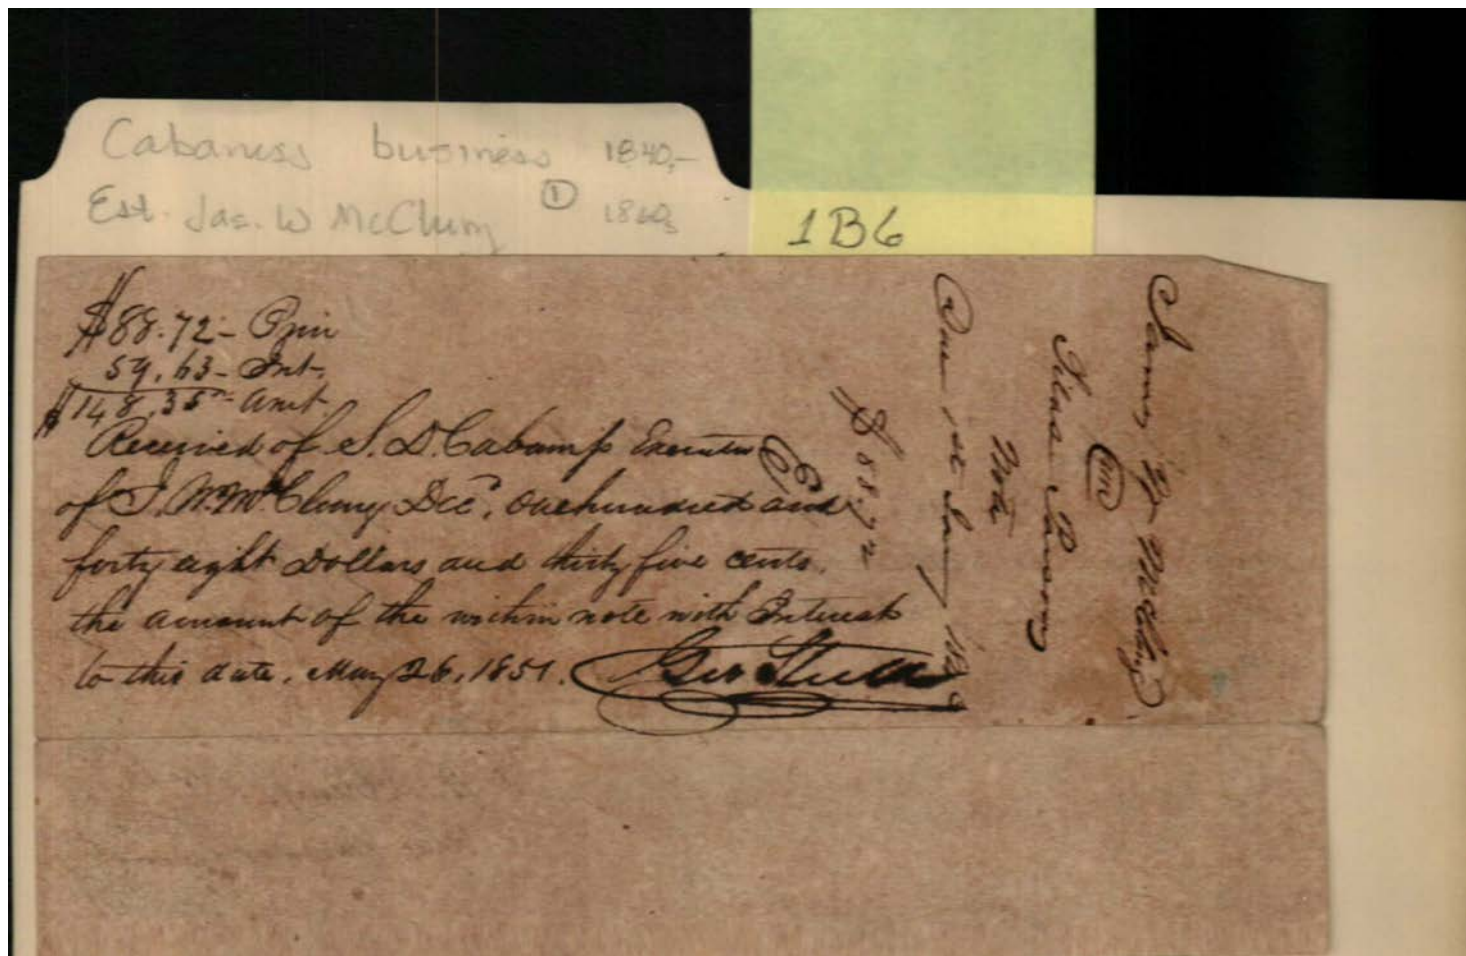 Cabaness business 1840,-
Est. Jas. W McClung ① 1860s
1B6
$88.72 - Prin
59.63 - Int.
$148.35 - Amt.
Received of S. D. Cabaniss Executor
of J. W. McClung Decd. one hundred and
forty eight Dollars and thirty five cents.
the amount of the within note with Interest
to this date. May 26, 1851. Geo
$88.72
Due 1st Jany
Note
Silas Parsons
James W. McClung